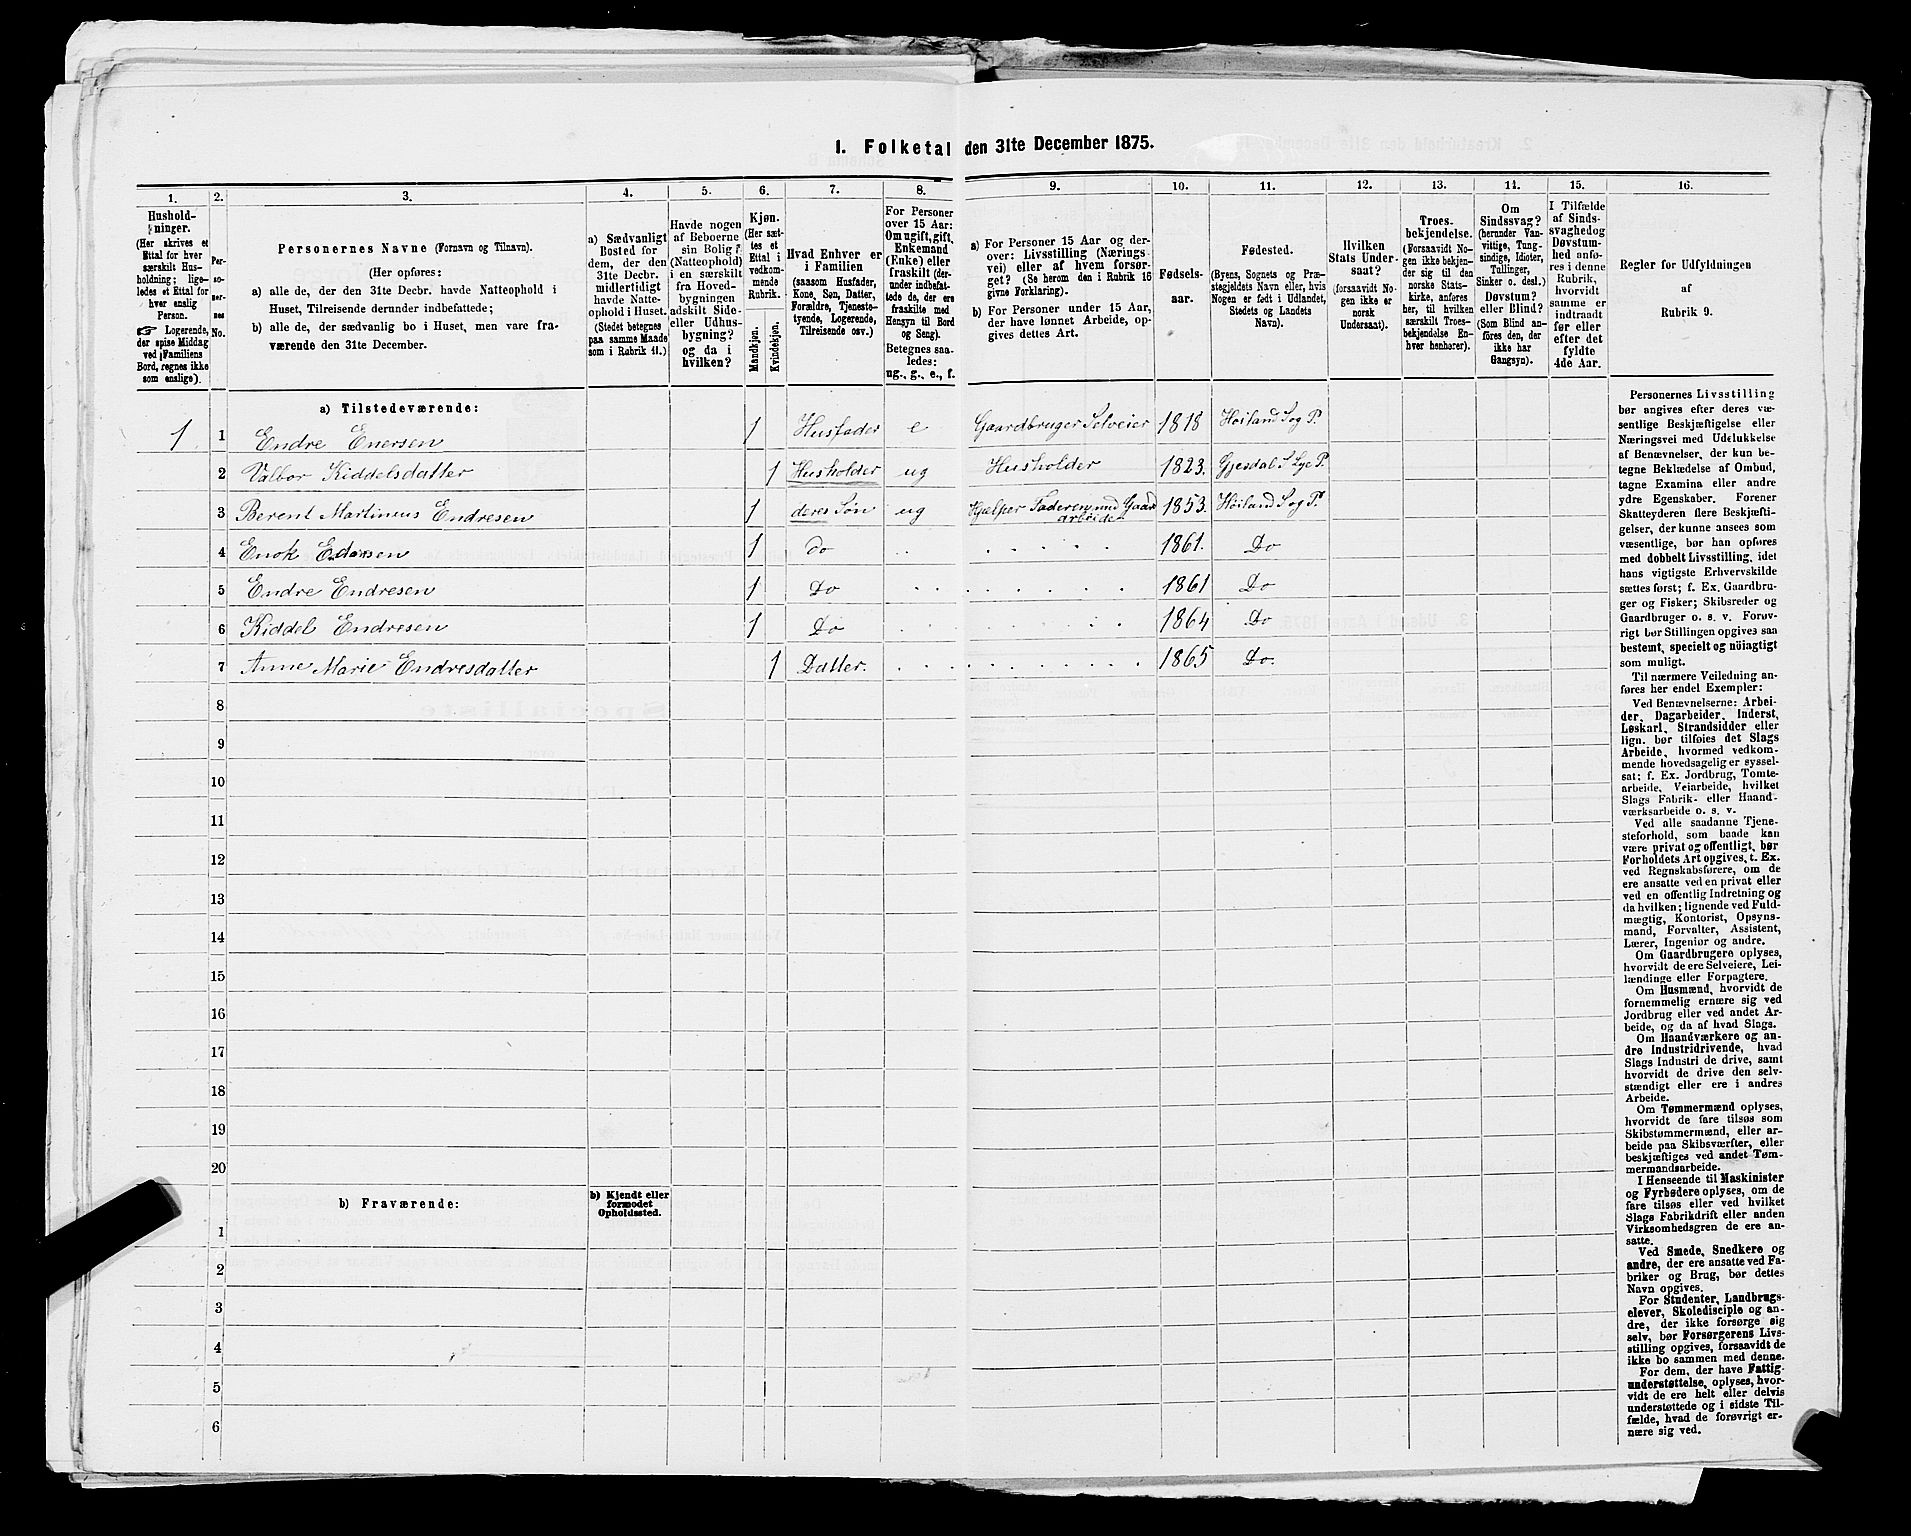 1. Folketal den 31te December 1875.
1.
2.
3.
4.
5.
6.
7.
8.
9.
10.
11.
12.
13.
14.
15.
16.
Hushold-
ninger.
(Her skrives et
Ettal for hver
særskilt Hus-
holdning; lige-
ledes et Ettal for
hver enslig
Person.
☞ Logerende,
der spise Middag
ved Familiens
Bord, regnes ikke
som enslige).
Per-
so-
ner-
nes
No.
Personernes Navne (Fornavn og Tilnavn).
(Her opføres:
a) alle de, der den 31te Decbr. havde Natteophold i
Huset, Tilreisende derunder indbefattede;
b) alle de, der sædvanlig bo i Huset, men vare fra-
værende den 31te December.
a) Sædvanligt
Bosted for
dem, der den
31te Decbr.
midlertidigt
havde Natte-
ophold i Huset.
(Stedet betegnes
paa samme Maade
som i Rubrik 11.)
Havde nogen
af Beboerne
sin Bolig
(Natteophold)
i en særskilt
fra Hoved-
bygningen
adskilt Side-
eller Udhus-
bygning?
og da i
hvilken?
Kjøn.
(Her sæt-
tes et
Ettal i
vedkom-
mende
Rubrik.
Mandkjøn.
Kvindekjøn.
Hvad Enhver er
i Familien
(saasom Husfader,
Kone, Søn, Datter,
Forældre, Tjeneste-
tyende, Logerende,
Tilreisende osv.)
For Personer
over 15 Aar:
Om ugift, gift,
Enkemand
(Enke) eller
fraskilt (der-
under indbefat-
tede de, der ere
fraskilte med
Hensyn til Bord
og Seng).
Betegnes saa-
ledes:
ug., g., e., f.
a) For Personer 15 Aar og der-
over: Livsstilling (Nærings-
vei) eller af hvem forsør-
get? (Se herom den i Rubrik 16
givne Forklaring).
b) For Personer under 15 Aar,
der have lønnet Arbeide, op-
gives dettes Art.
Fødsels-
aar.
Fødested.
(Byens, Sognets og Præ-
stegjeldets Navn eller, hvis
Nogen er født i Udlandet,
Stedets og Landets
Navn).
Hvilken
Stats Under-
saat?
(forsaavidt No-
gen ikke er
norsk
Undersaat).
Troes-
bekjendelse.
(Forsaavidt No-
gen ikke bekjen-
der sig til den
norske Stats-
kirke, anføres
her, til hvilken
særskilt Troes-
bekjendelse En-
hver henhører).
Om
Sindssvag?
(herunder Van-
vittige, Tung-
sindige, Idioter,
Tullinger,
Sinker o. desl.)
Døvstum?
eller Blind?
(Som Blind an-
føres den, der
ikke har
Gangsyn).
I Tilfælde
af Sinds-
svaghed og
Døvstum-
hed anfø-
res i denne
Rubrik,
hvorvidt
samme er
indtraadt
før eller
efter det
fyldte
4de Aar.
Regler for Udfyldningen
af
Rubrik 9.
a) Tilstedeværende:
1 1 Endre Enersen 1 Husfader e Gaardbruger Selveier 1818 Høiland S og P.
2 Valbor Kiddelsdatter 1 Husholder ug Husholder 1823. Gjesdal S Lye P.
3 Berent Martinius Endresen 1 deres Søn ug Hjælper Faderen med Gaard 1853. Høiland S og P.
arbeide
4 Enok 1 do 1861. Do
5 Endre Endresen 1 Do 1861 Do
6 Kiddel Endresen 1 Do 1864 Do
7 Anne Marie Endresdatter 1 Datter. 1865 Do.
8
9
10
11
12
13
14
15
16
17
18
19
20
b) Fraværende:
b) Kjendt eller
formodet
Opholdssted.
1
2
3
4
5
6
Personernes Livsstilling
bør angives efter deres væ-
sentlige Beskjæftigelse eller
Næringsvei med Udelukkelse
af Benævnelser, der kun be-
tegne Beklædelse af Ombud,
tagne Examina eller andre
ydre Egenskaber. Forener
Skatteyderen flere Beskjæfti-
gelser, der kunne ansees som
væsentlige, bør han opføres
med dobbelt Livsstilling, idet
hans vigtigste Erhvervskilde
sættes først; f. Ex. Gaardbru-
ger og Fisker; Skibsreder og
Gaardbruger o. s. v. Forøv-
rigt bør Stillingen opgives saa
bestemt, specielt og nøiagtigt
som muligt.
Til nærmere Veiledning an-
føres her endel Exempler:
Ved Benævnelserne: Arbei-
der, Dagarbeider, Inderst,
Løskarl, Strandsidder eller
lign. bør tilføies det Slags
Arbeide, hvormed vedkom-
mende hovedsagelig er syssel-
sat; f. Ex. Jordbrug, Tomte-
arbeide, Veiarbeide, hvilket
Slags Fabrik- eller Haand-
værksarbeide o. s. v.
Ved alle saadanne Tjene-
steforhold, som baade kan
være privat og offentligt, bør
Forholdets Art opgives, t. Ex.
ved Regnskabsførere, om de
ere ansatte ved en privat eller
ved en offentlig Indretning og
da hvilken; lignende ved Fuld-
mægtig, Kontorist, Opsyns-
mand, Forvalter, Assistent,
Lærer, Ingeniør og andre.
Om Gaardbrugere oplyses,
hvorvidt de ere Selveiere, Lei-
lændinge eller Forpagtere.
Om Husmænd, hvorvidt de
fornemmelig ernære sig ved
Jordbrug eller ved andet Ar-
beide, og da af hvad Slags.
Om Haandværkere og an-
dre Industridrivende, hvad
Slags Industri de drive, samt
hvorvidt de drive den selv-
stændigt eller ere i andres
Arbeide.
Om Tømmermænd oplyses,
hvorvidt de fare tilsøs som
Skibstømmermænd, eller ar-
beide paa Skibsværfter, eller
beskjæftiges ved andet Tøm-
mermandsarbeide.
I Henseende til Maskinister
og Fyrbødere oplyses, om de
fare tilsøs eller ved hvilket
Slags Fabrikdrift eller anden
Virksomhedsgren de ere an-
satte.
Ved Smede, Snedkere og
andre, der ere ansatte ved Fa-
briker og Brug, bør dettes
Navn opgives.
For Studenter, Landbrugs-
elever, Skoledisciple og an-
dre, der ikke forsørge sig
selv, bør Forsørgerens Livs-
stilling opgives, forsaavidt de
ikke bo sammen med denne.
For dem, der have Fattig-
understøttelse, oplyses, hvor-
vidt de ere helt eller delvis
understøttede og i sidste Til-
fælde, hvad de forøvrigt er-
nære sig ved.